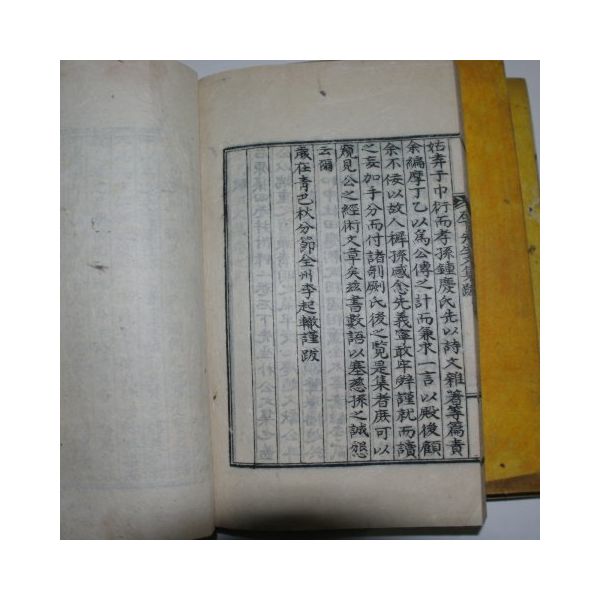 姑弆于巾衍而孝孫鍾慶氏先以詩文雜著等篇責
余編摩丁乙以爲公傳之計而兼求一言以殿後顧
余不佞以故人稺孫感念先義寧敢牢辭謹就而讀
之妄加手分而付諸剞劂氏後之覽是集者庶可以
窺見公之經術文章矣玆書數語以塞慈孫之誠懇
云爾
歲在青巴秋分節全州李起轍謹跋